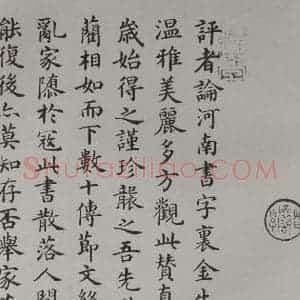 評者論河南書字裏金生
温雅美麗多分觀此賛真
歲始得之謹珍藏之吾先
藺相如而下數十傳節文
亂家隨於寇此書散落人間
能復後亦莫知存否舉家